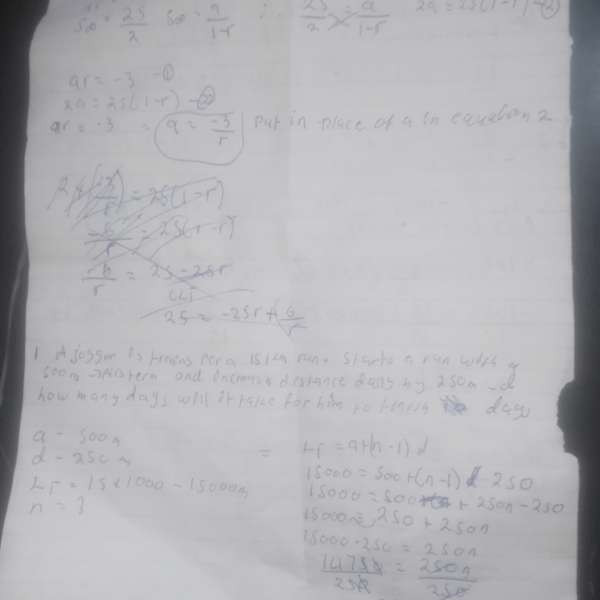 S∞ = 25/2  S∞ = a/1-r ; 25/2 = a/1-r  2a = 25(1-r) -②
ar = -3 -①
2a = 25(1-r) -②
ar = -3 = a = -3/r put in place of a in equation 2
= 25(1-r)
-6/r = 25(1-r)
-6/r = 25 - 25r
25 = -25r + 6/r
1 A jogger is training for a 15km run starts a run with a
500m and increase distance daily by 250m
how many days will it take for him to days
a = 500m
d = 250m
= 15 x 1000 - 15000m
n = ?
= = a+(n-1)d
15000 = 500+(n-1) 250
15000 = 500 + 250n - 250
15000 = 250 + 250n
15000 - 250 = 250n
14750/250 = 250n/250